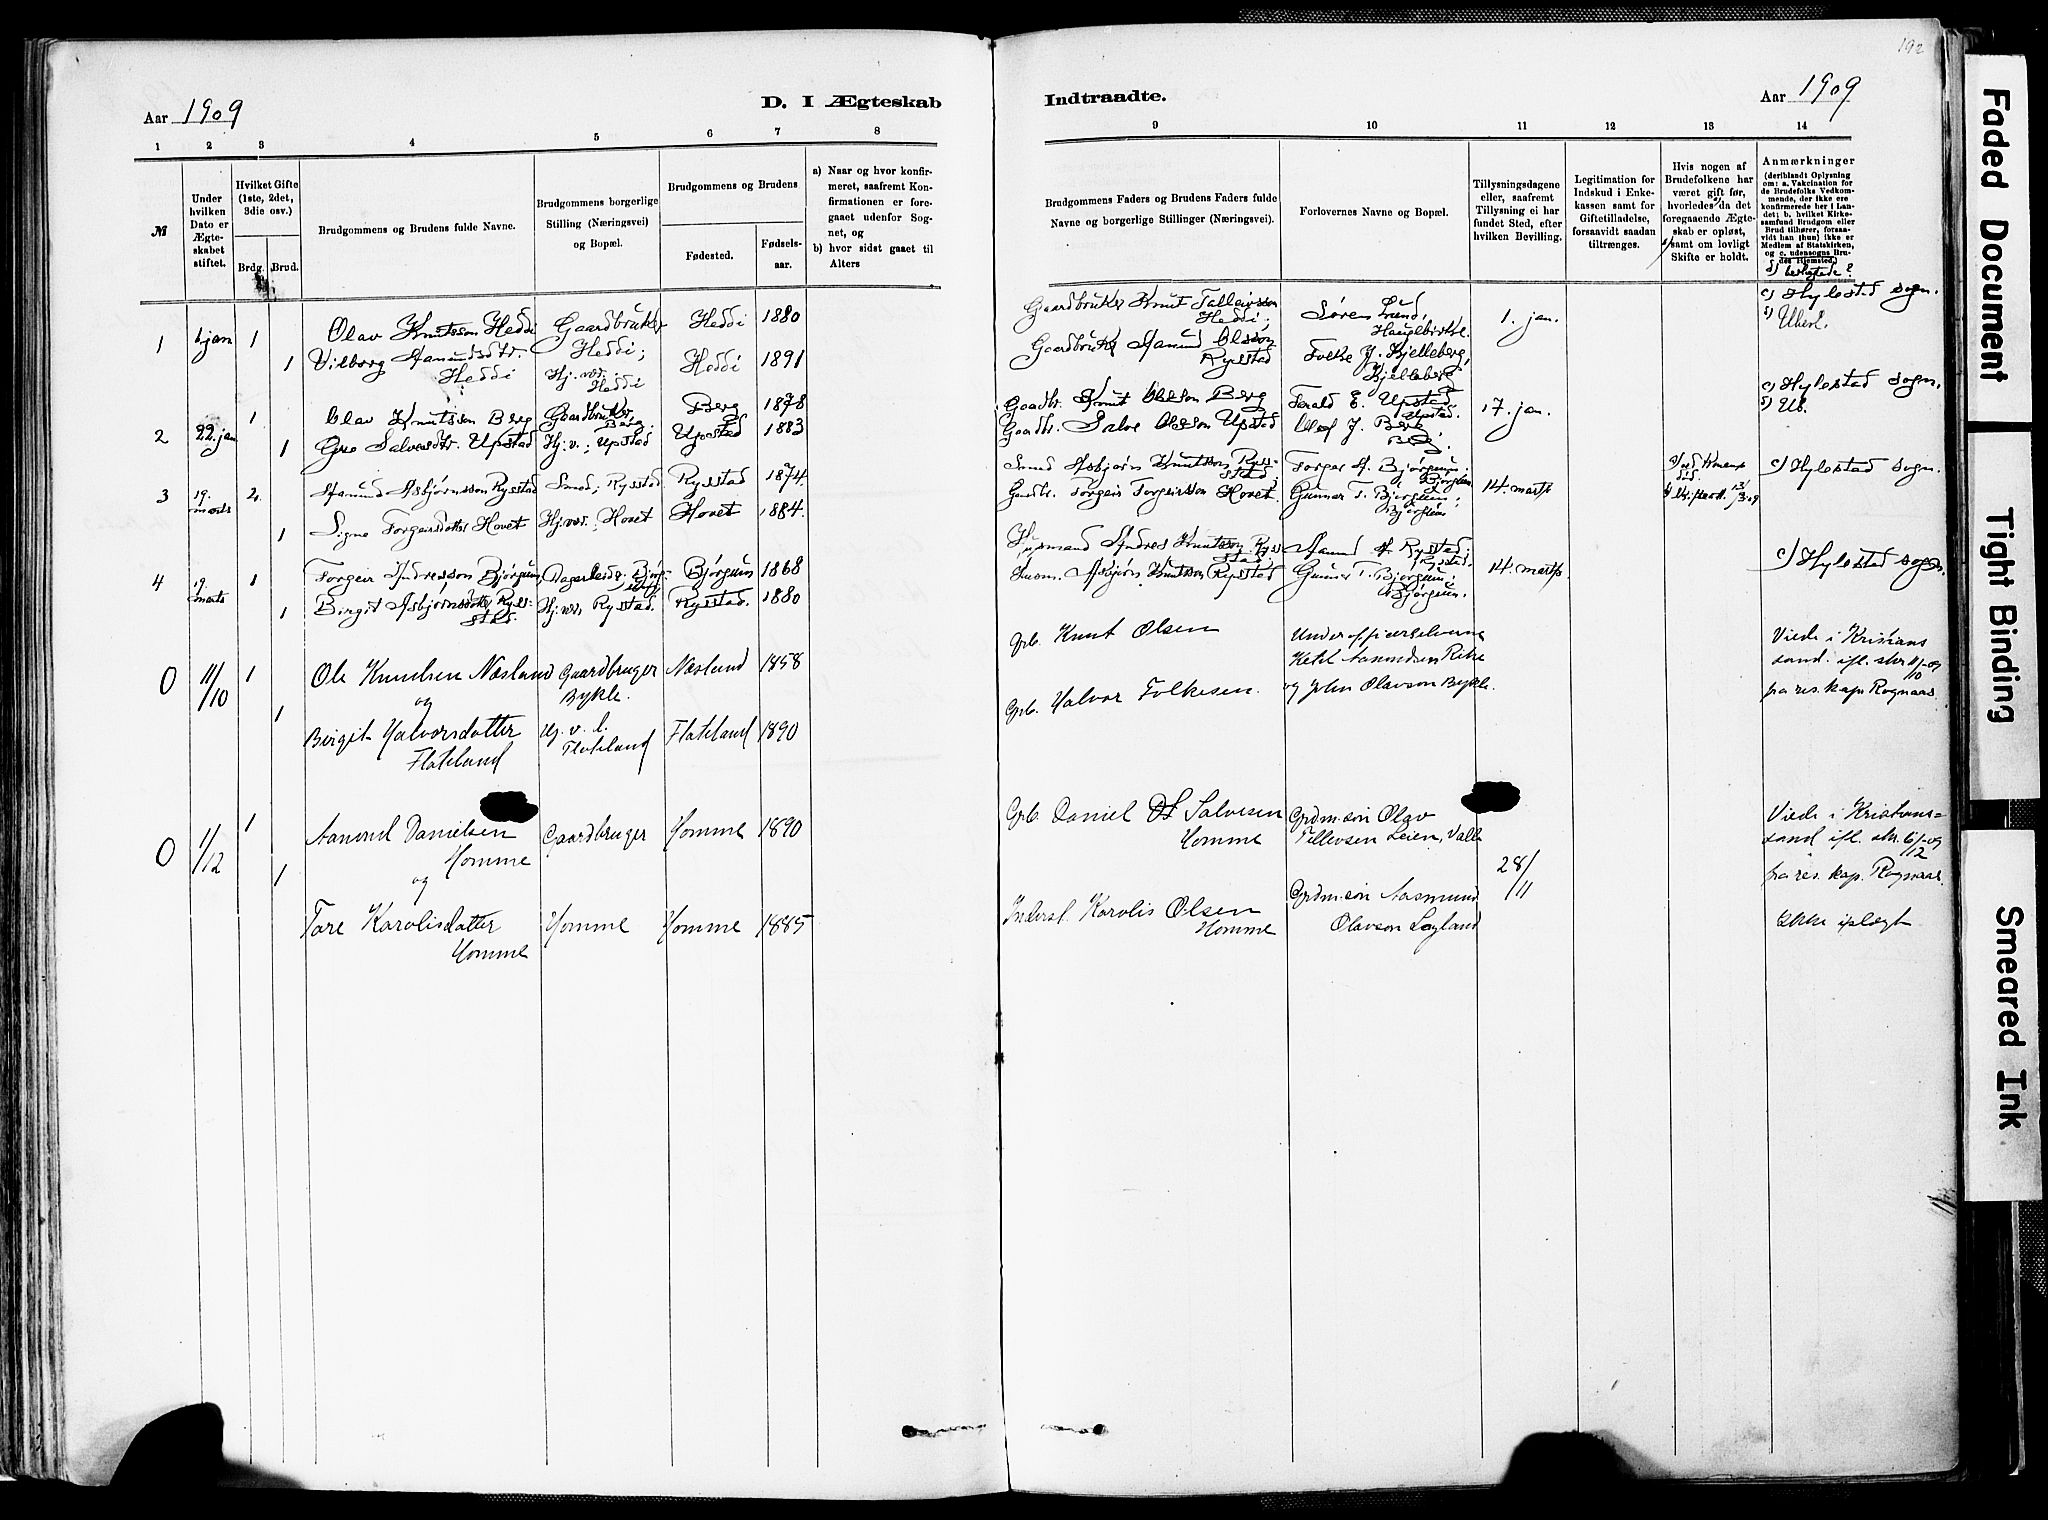 192
Aar 1909
D. I Ægteskab
Indtraadte.
Aar 1909
1 2 3 4 5 6 7 8
9 10 11 12 13 14
№
Under hvilken Dato er Ægteskabet stiftet.
Hvilket Gifte (1ste, 2det, 3die osv.)
Brdg. Brud.
Brudgommens og Brudens fulde Navne.
Brudgommens borgerlige Stilling (Næringsvei) og Bopæl.
Brudgommens og Brudens
Fødested.
Fødselsaar.
a) Naar og hvor konfirmeret, saafremt Konfirmationen er foregaaet udenfor Sognet, og
b) hvor sidst gaaet til Alters
Brudgommens Faders og Brudens Faders fulde Navne og borgerlige Stillinger (Næringsvei).
Forlovernes Navne og Bopæl.
Tillysningsdagene eller, saafremt Tillysning ei har fundet Sted, efter hvilken Bevilling.
Legitimation for Indskud i Enkekassen samt for Giftetilladelse, forsaavidt saadan tiltrænges.
Hvis nogen af Brudefolkene har været gift før, hvorledes da det foregaaende Ægteskab er opløst, samt om lovligt Skifte er holdt.
Anmærkninger
(deriblandt Oplysning om: a. Vakcination for de Brudefolks Vedkommende, der ikke ere konfirmerede her i Landet; b. hvilket Kirkesamfund Brudgom eller Brud tilhører, forsaavidt han (hun) ikke er Medlem af Statskirken, og c. udensogns Brudes Hjemsted.)
1 jan 1 Olav Knutsson Heddi Gaardbruker Heddi; Heddi 1880
1 Vilborg Aamundsdtr. Heddi Hj.væ. Heddi Heddi 1891
Gaardbruker Knut Talleivsson Heddi; Søren Lund, 1. jan. c) Hylestad sogn.
Gaardbruker Aamund Olsson Rysstad Folke J. Kjelleberg, Kjelleberg
2 22 jan 1 Olav Knutsson Berg Gaardbruker, Berg Berg 1878
1 Salvesdtr. Upstad Hj.v.; Upstad Upstad 1883
Gaardbr. Knut Olsson Berg Upstad. 17. jan. c) Hylestad sogn.
Gaardbr. Salve Olsson Upstad Olof J. Berg Berg.
3 19. marts 2. Aamund Asbjørnsson Rysstad Smed; Rysstad Rysstad 1874.
1 Signe Torgeirsdotter Hovet Hj.væ.; Hovet Hovet 1884.
Smed Asbjørn Knutsson Rysstad; Torgeir A. Bjørgum; Bjørgum c) Hylestad sogn.
Gaardbr. Torgeir Torgeirsson Hovet. Gunnar T. Bjørgum; Bjørgum 14. marts
4 19. marts 1 Torgeir Andresson Bjørgum, Dagarbeider; Bjørgum Bjørgum 1868
1 Birgit Asbjørnsdotter Rysstad. Hj.væ, Rysstad. Rysstad. 1880
Husmand Andres Knutsson Rysstad; Aamund A. Rysstad; Rysstad. c) Hylestad sogn.
Asbjørn Knutsson Rysstad Gunnar T. Bjørgum; Bjørgum. 14. marts.
0 11/10 1 Ole Knudsen Næsland Gaardbruger Bykle. Næsland 1858
og
1 Birgit Halvorsdatter Flateland Hj. v. l. Flateland Flateland 1890
Grb. Knut Olsen Underofficerselverne
Ketil Aamundsen Rike
Grb. Halvor Folkesen. og John Olavson Bykle.
Viede i Kristiansand. ifl. skr. 11/10-09
fra res. kap. Rognaas.
0 1/12 1 Aanund Danielsen Homme Gaardbruger Homme 1890
og
1 Tore Karolisdatter Homme Homme Homme 1885
Grb. Daniel Salvesen Homme Grdm.søn Olav Tellevsen Leien, Valle
28/11
Inderst. Karolis Olsen Homme Grdm.søn Aasmund Olavson Løyland
Viede i Kristiansand ifl. skr. 6/12-09
fra res. kap. Rognaas.
Ikke iplagt
Faded Document
Tight Binding
Smeared Ink